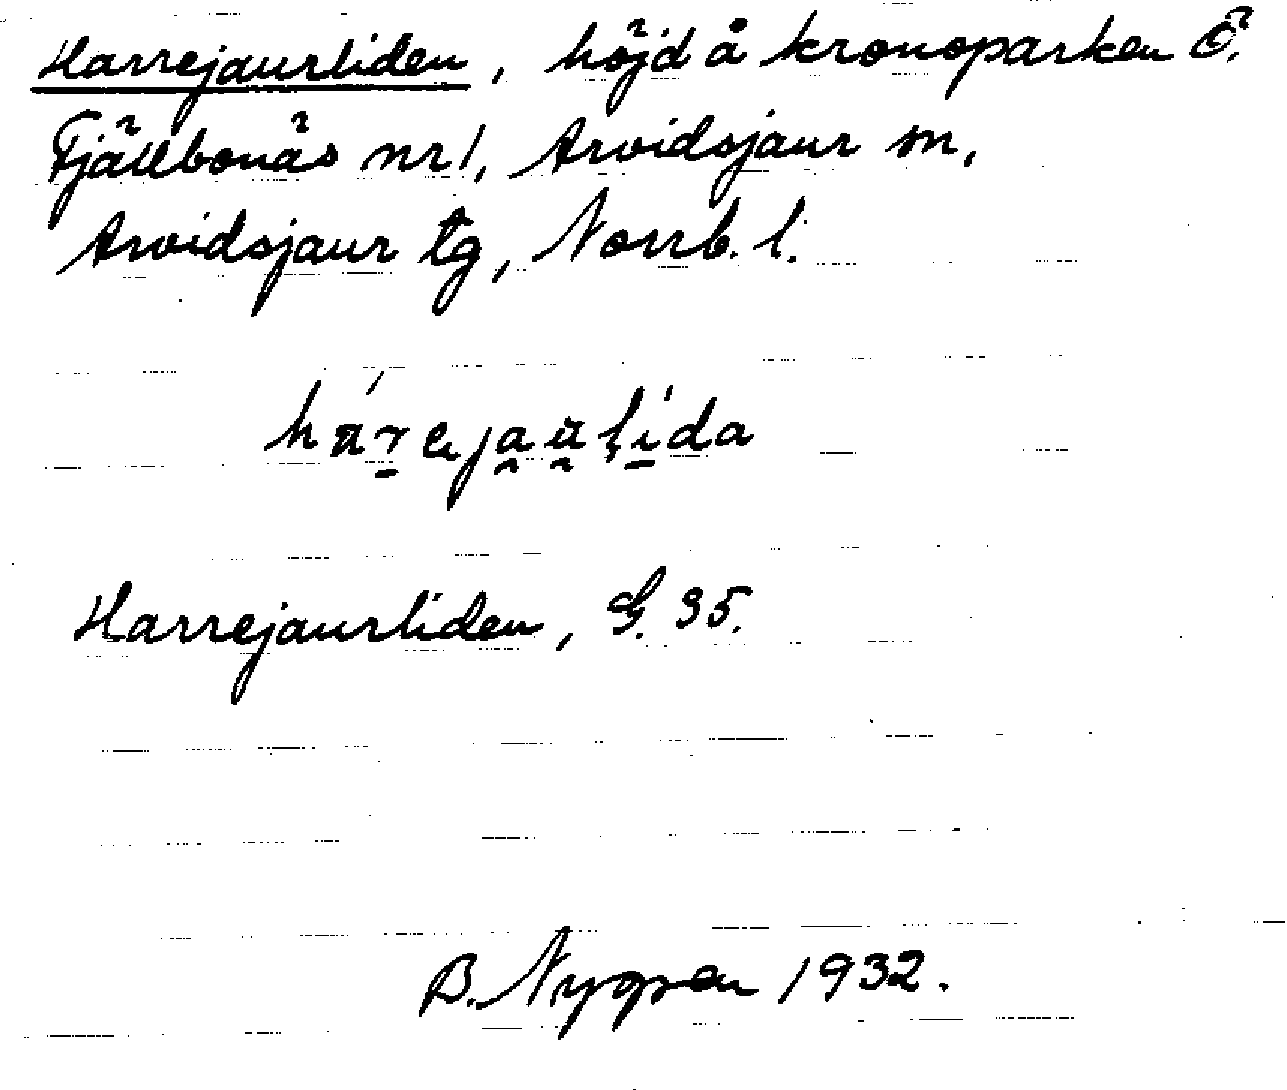 Harrejaurliden, höjd å kronoparken Ö.
Fjällbonäs nr 1, Arvidsjaur sn,
Arvidsjaur tg, Norrb. l.
Harrejaurliden, G. 35.
B. Nygren 1932.